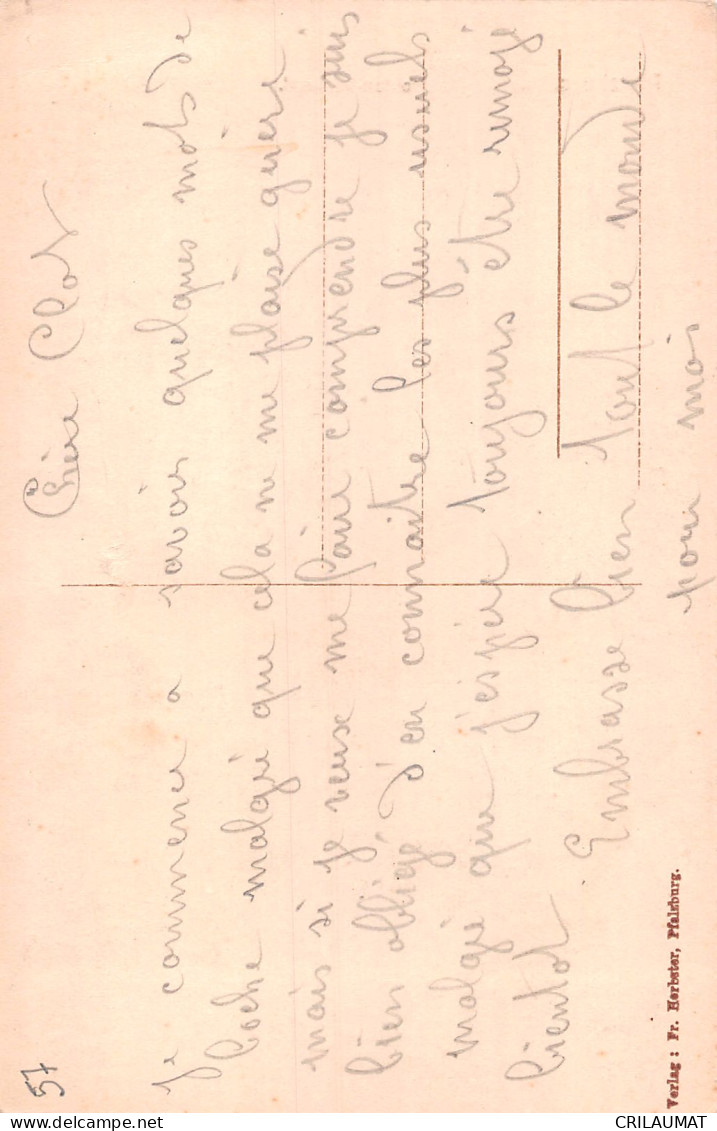 Chère Clot
Je commence a savoir quelques mots de
boche malgré que cela ne me plaise guère
mais si je veux me faire comprendre je suis
bien obligé d'en connaitre les plus usuels
malgré que j'espère toujours être
bientot Embrasse bien tout le monde
pour moi
57
Verlag : Fr. Herbster, Pfalzburg.
CRILAUMAT